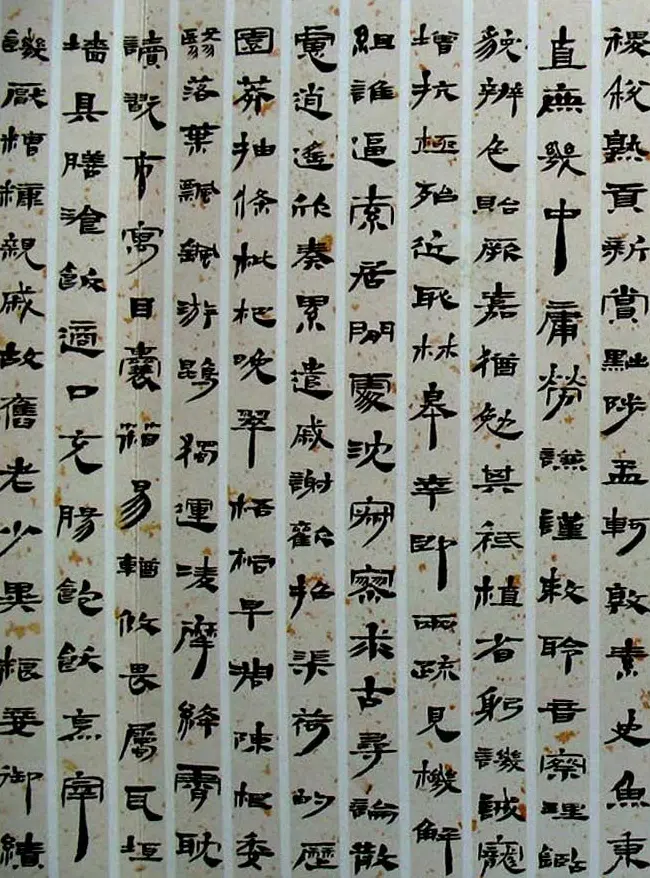 稷稅熟貢新賞黜陟孟軻敦素史魚東
直庶幾中庸勞謙謹敕聆音察理鑑
貌辨色貽厥嘉猶勉其祗植省躬譏誡寵
增抗極殆近恥林皋幸即兩疏見機解
組誰逼索居閒處沈寂寥求古尋論散
慮逍遙欣奏累遣戚謝歡招渠荷的歷
園莽抽條枇杷晚翠梧桐早凋陳根委
翳落葉飄颻游鵾獨運凌摩絳霄耽
讀翫市寓目囊箱易輶攸畏屬耳垣
墻具膳飡飯適口充腸飽飫烹宰
饑厭糟糠親戚故舊老少異粮妾御績